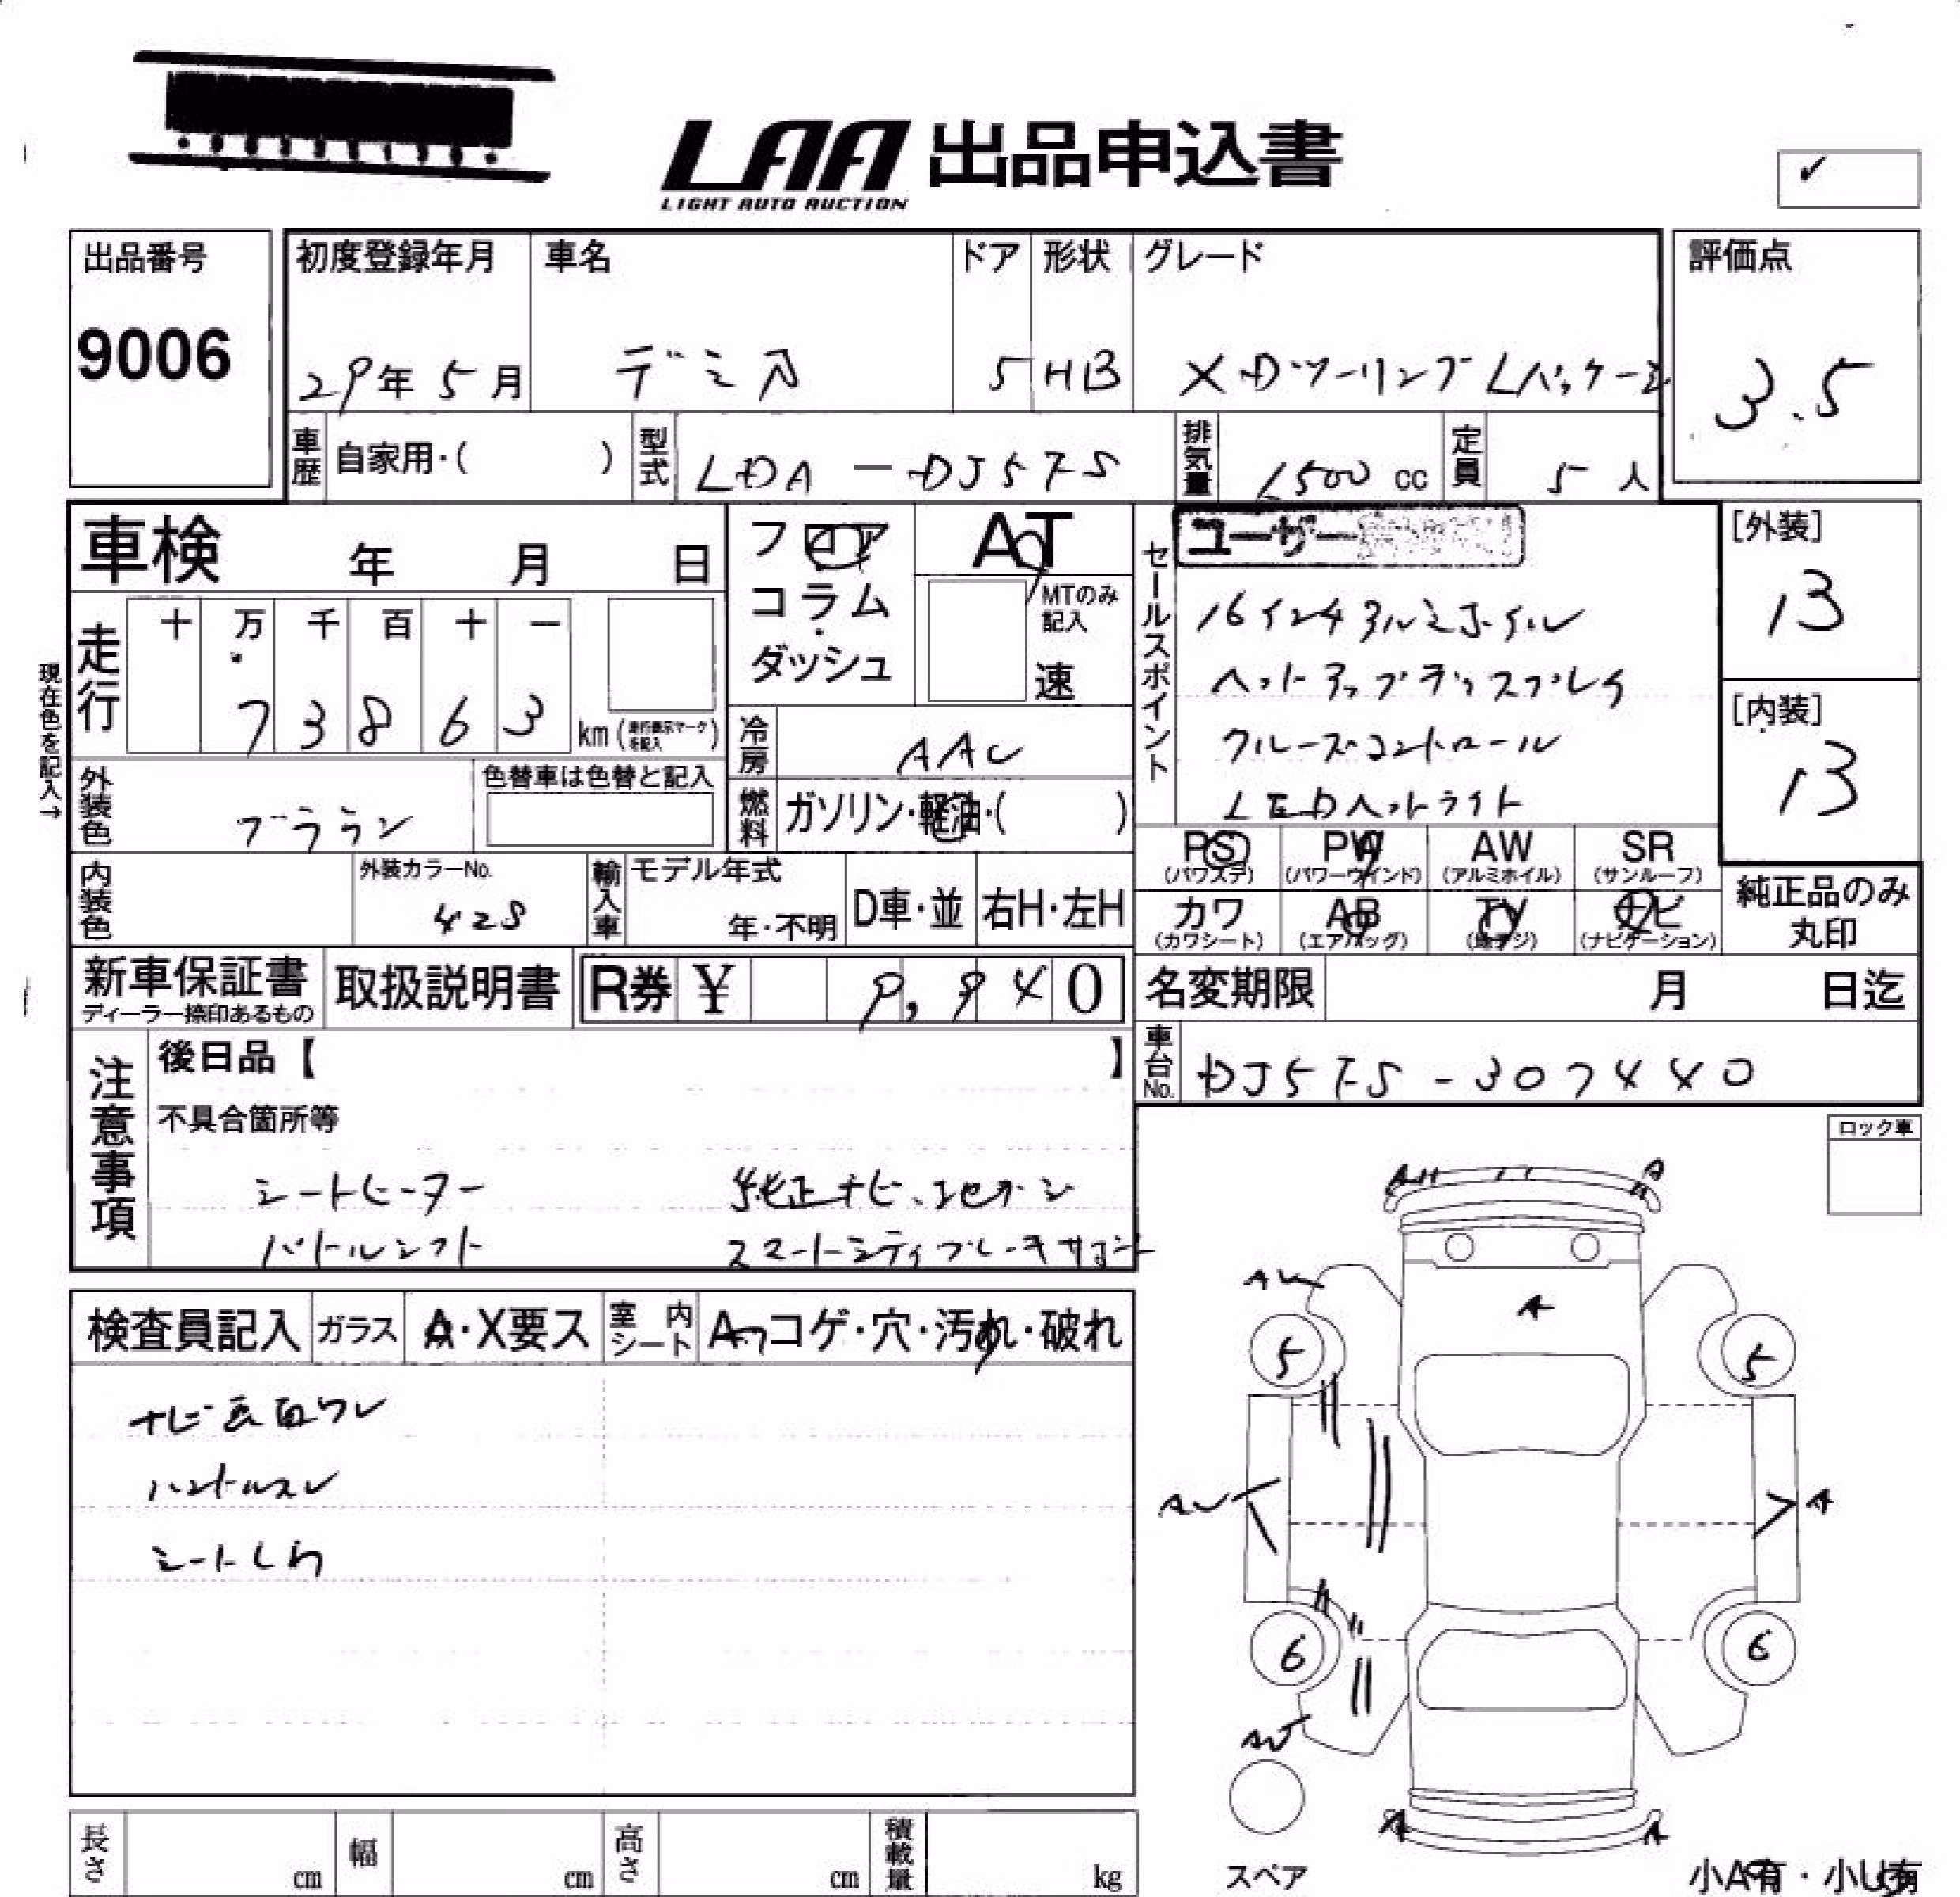 LAA 出品申込書
LIGHT AUTO AUCTION
出品番号
9006
初度登録年月 車名 ドア 形状 グレード
29年 5月 デミオ 5 HB XDツーリングLパッケージ
評価点
3.5
車歴 自家用・( ) 型式 LDA-DJ5FS 排気量 1500 cc 定員 5人
車検 年 月 日
フロア
コラム・
ダッシュ
AT
MTのみ記入
速
セールスポイント
ユーザー
16インチアルミホイル
ヘットアップディスプレイ
クルーズコントロール
LEDヘットライト
[外装]
13
[内装]
13
現在色を記入→
走行 十 万 千 百 十 一
7 3 8 6 3 km (走行表示マークを記入)
冷房 AAC
外装色 ブラウン 色替車は色替と記入
燃料 ガソリン・軽油・( )
PS PW AW SR
(パワステ) (パワーウインド) (アルミホイル) (サンルーフ)
カワ AB TV ナビ
(カワシート) (エアバッグ) (地デジ) (ナビゲーション)
純正品のみ
丸印
内装色 外装カラーNo. 42S 輸入車 モデル年式 年・不明 D車・並 右H・左H
新車保証書
ディーラー捺印あるもの
取扱説明書 R券 ¥ 9,940
名変期限 月 日迄
車台No. DJ5FS-307440
注意事項
後日品【 】
不具合箇所等
シートヒーター 純正ナビ
パドルシフト スマートシティブレーキサポート
ロック車
検査員記入 ガラス A・X要ス 室内シート A・コゲ・穴・汚れ・破れ
ナビ画面ワレ
ハンドルスレ
シートしわ
A A
AU A
5 5
AU A
6 6
AU
A A
スペア
小A有・小U有
長さ cm 幅 cm 高さ cm 積載量 kg